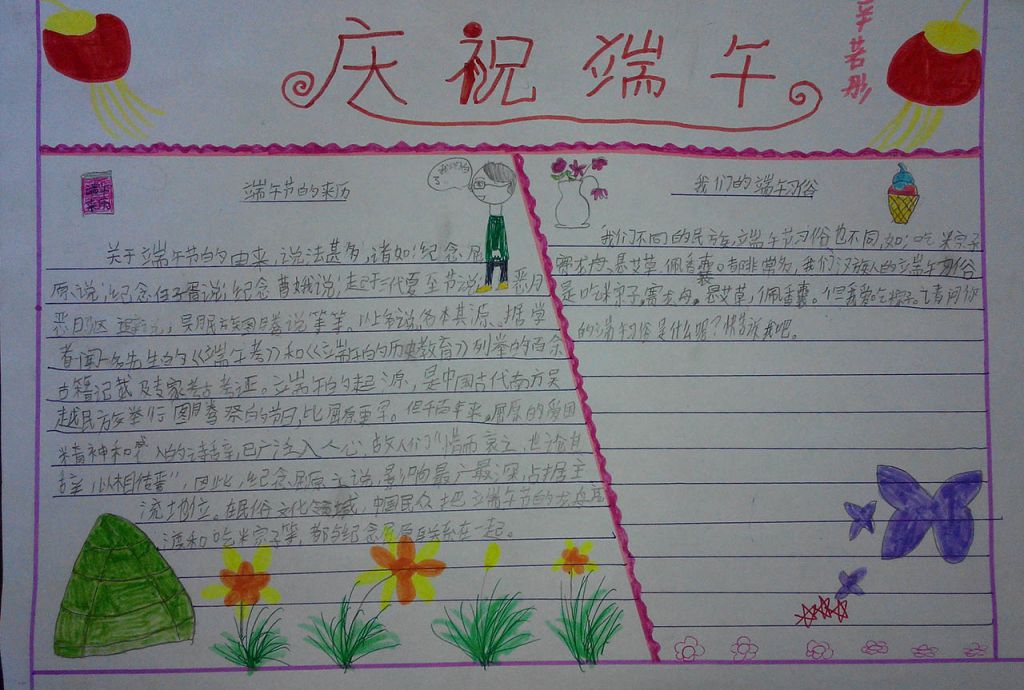 庆祝端午
辛若彤
端午
来历
端午节的来历
关于端午节的由来,说法甚多,诸如:纪念屈
原说;纪念伍子胥说;纪念曹娥说;起于三代夏至节说;恶月
恶日驱避说,吴月民族图腾说等等。以上各说,各本其源。据学
者闻一多先生的《端午考》和《端午的历史教育》列举的百余
古籍记载及专家考古考证。端午的起源,是中国古代南方吴
越民族举行图腾祭的节日,比屈原更早。但千百年来,屈原的爱国
精神和感人的诗辞,已广泛入人心,故人们“惜而哀之,世论其
辞,以相传焉”,因此,纪念屈原之说,影响最广最深,占据主
流地位。在民俗文化领域,中国民众把端午节的龙舟竞
渡和吃粽子等,都与纪念屈原联系在一起。
我们的端午习俗
我们不同的民族,端午节习俗也不同,如:吃粽子
赛龙舟、悬艾草,佩香囊。都非常多,我们汉族人的端午习俗
是吃粽子,赛龙舟。悬艾草,佩香囊。但我爱吃粽子。请问你
的端午习俗是什么呢?快告诉我吧。